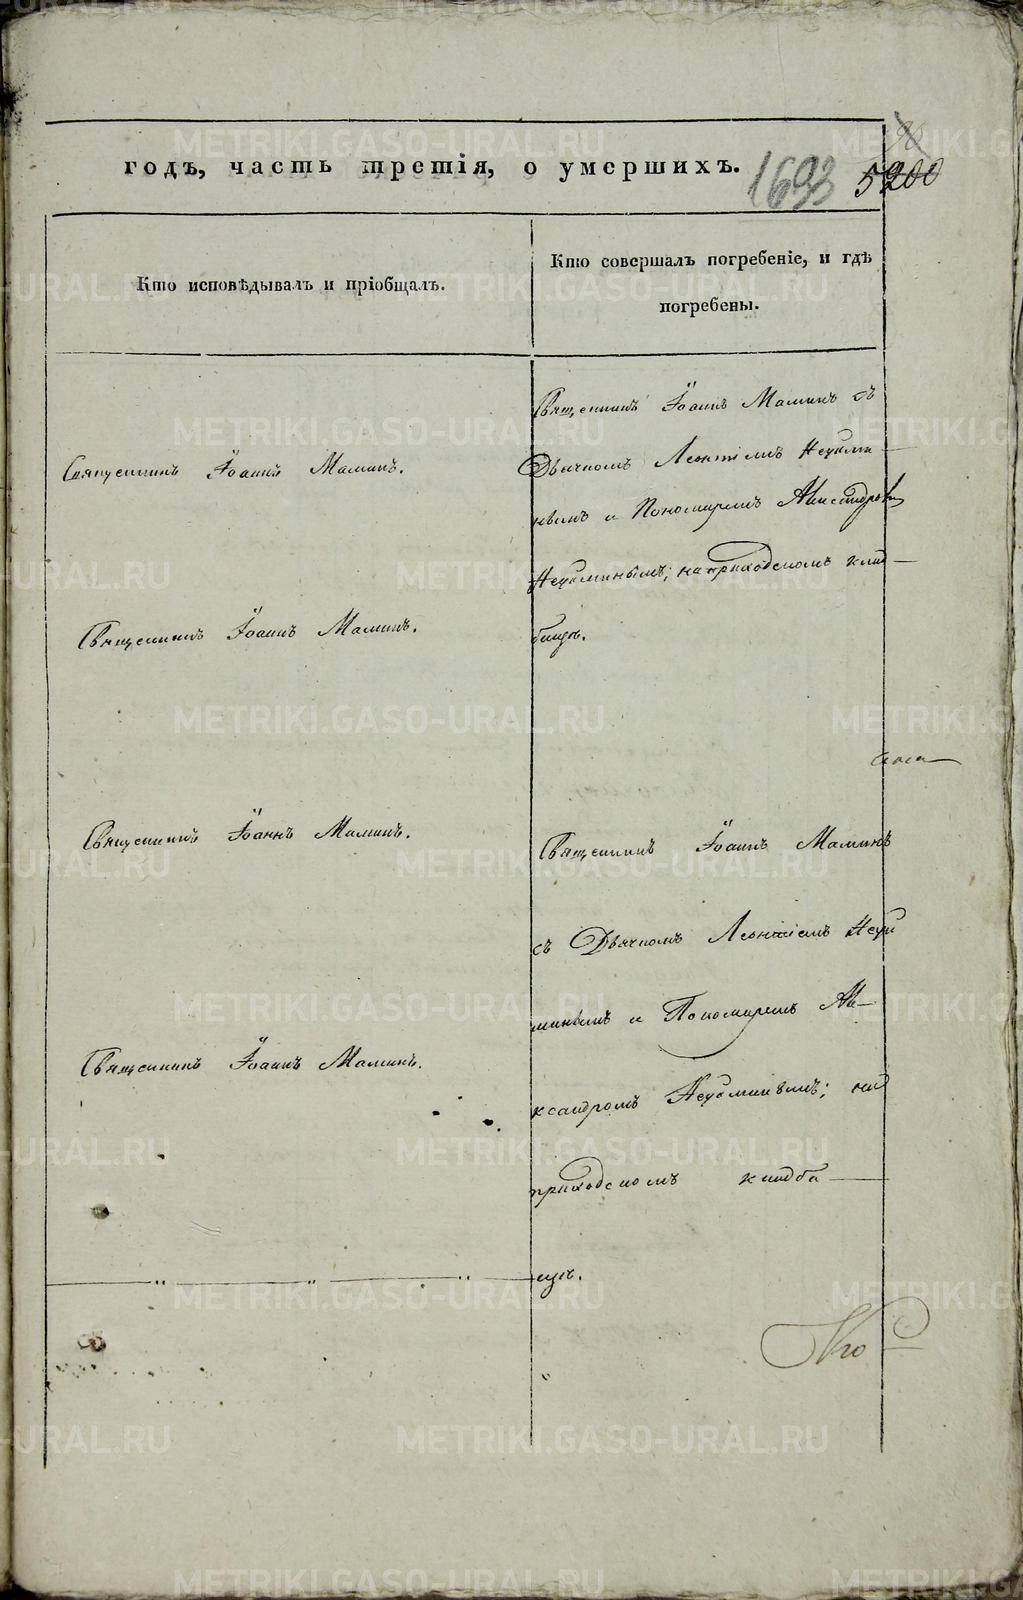 годъ, часть третія, о умершихъ.
1693
5200
Кто исповѣдывалъ и пріобщалъ.
Кто совершалъ погребеніе, и гдѣ
погребены.
Священникъ Іоаннъ Маминъ.
Священникъ Іоаннъ Маминъ.
Священникъ Іоаннъ Маминъ.
Священникъ Іоаннъ Маминъ.
Священникъ Іоаннъ Маминъ съ
Дьячкомъ Леонтіемъ Неуйми-
нымъ и Пономаремъ Александромъ
Неуйминымъ; на приходскомъ клад-
бищѣ.
Священникъ Іоаннъ Маминъ
съ Дьячкомъ Леонтіемъ Неуй
минымъ и Пономаремъ Але-
ксандромъ Неуйминымъ; на
приходскомъ кладби-
щѣ.
METRIKI.GASO-URAL.RU